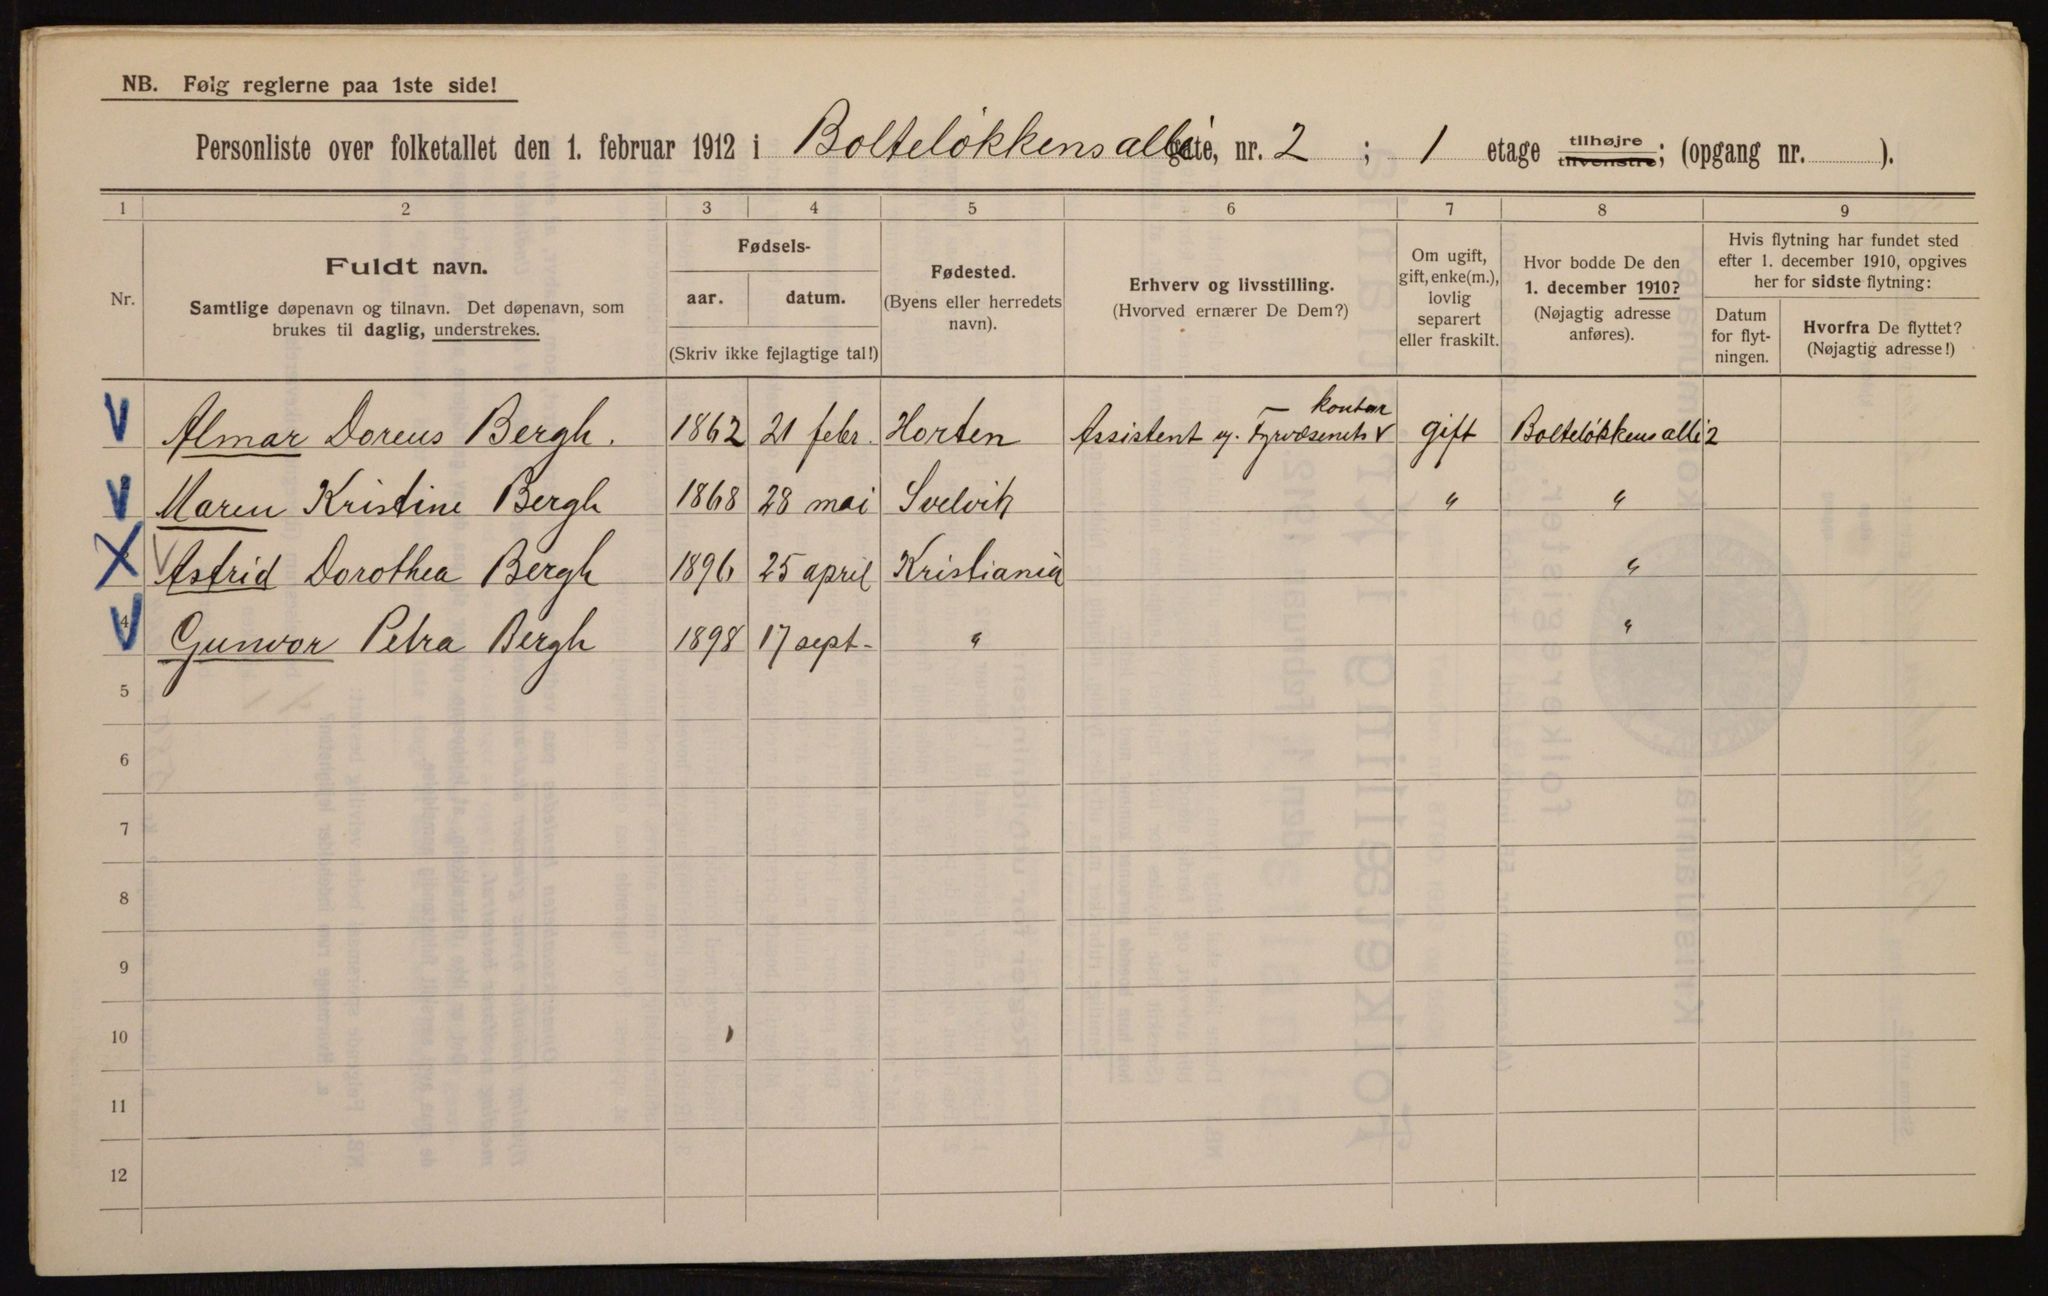 NB. Følg reglerne paa 1ste side!
Personliste over folketallet den 1. februar 1912 i Bolteløkkens allé gate, nr. 2 ; 1 etage tilhøjre tilvenstre; (opgang nr. ).
1 2 3 4 5 6 7 8 9
Nr.
Fuldt navn.
Samtlige døpenavn og tilnavn. Det døpenavn, som
brukes til daglig, understrekes.
Fødsels-
aar. datum.
(Skriv ikke fejlagtige tal!)
Fødested.
(Byens eller herredets
navn).
Erhverv og livsstilling.
(Hvorved ernærer De Dem?)
Om ugift,
gift, enke(m.),
lovlig
separert
eller fraskilt.
Hvor bodde De den
1. december 1910?
(Nøjagtig adresse
anføres).
Hvis flytning har fundet sted
efter 1. december 1910, opgives
her for sidste flytning:
Datum
for flyt-
ningen.
Hvorfra De flyttet?
(Nøjagtig adresse!)
Almar Doreus Bergh. 1862 21 febr. Horten Assistent v. Fyrvæsenets kontor gift Bolteløkkens allé 2
Maren Kristine Bergh 1868 28 mai Svelvik " "
Astrid Dorothea Bergh 1896 25 april Kristiania "
4 Gunvor Petra Bergh 1898 17 sept. " "
5
6
7
8
9
10
11
12